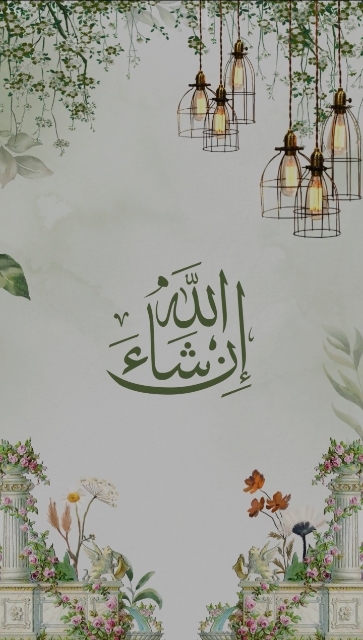 إِنْ شَاءَ اللّٰه